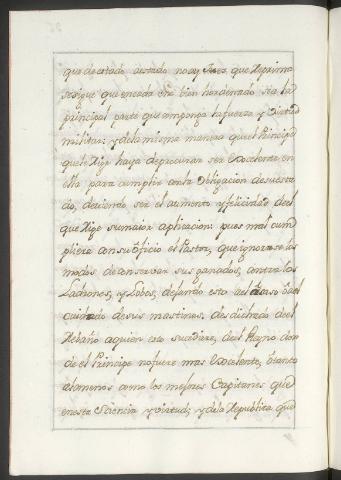 que de estado destado no ay Juez, que Reprima
se sigue que en cada cᵉ bien hordenado sea la
principal parte que componga la fuerza y Virtud
militar: y de la misma manera que el Principe
que le Rige haya de procurar ser Excelente en
ella para cumplir con la Obligacion de su esta
do, deviendo ser el aumento y felicidad del
que Rige su maior aplicacion: pues mal cum
pliera con su oficio el Pastor, que ignorase los
modos de conservar sus ganados, contra los
Ladrones, y Lobos; dejando esto al caso ò al
cuidado de sus mastines. desdichado del
Rebaño aquien esto sucediere, del Reyno don
de el Principe no fuere mas Excelente, ò tanto
alomenos como los mejores Capitanes que
en esta Sciencia y virtud; y de la Republica que